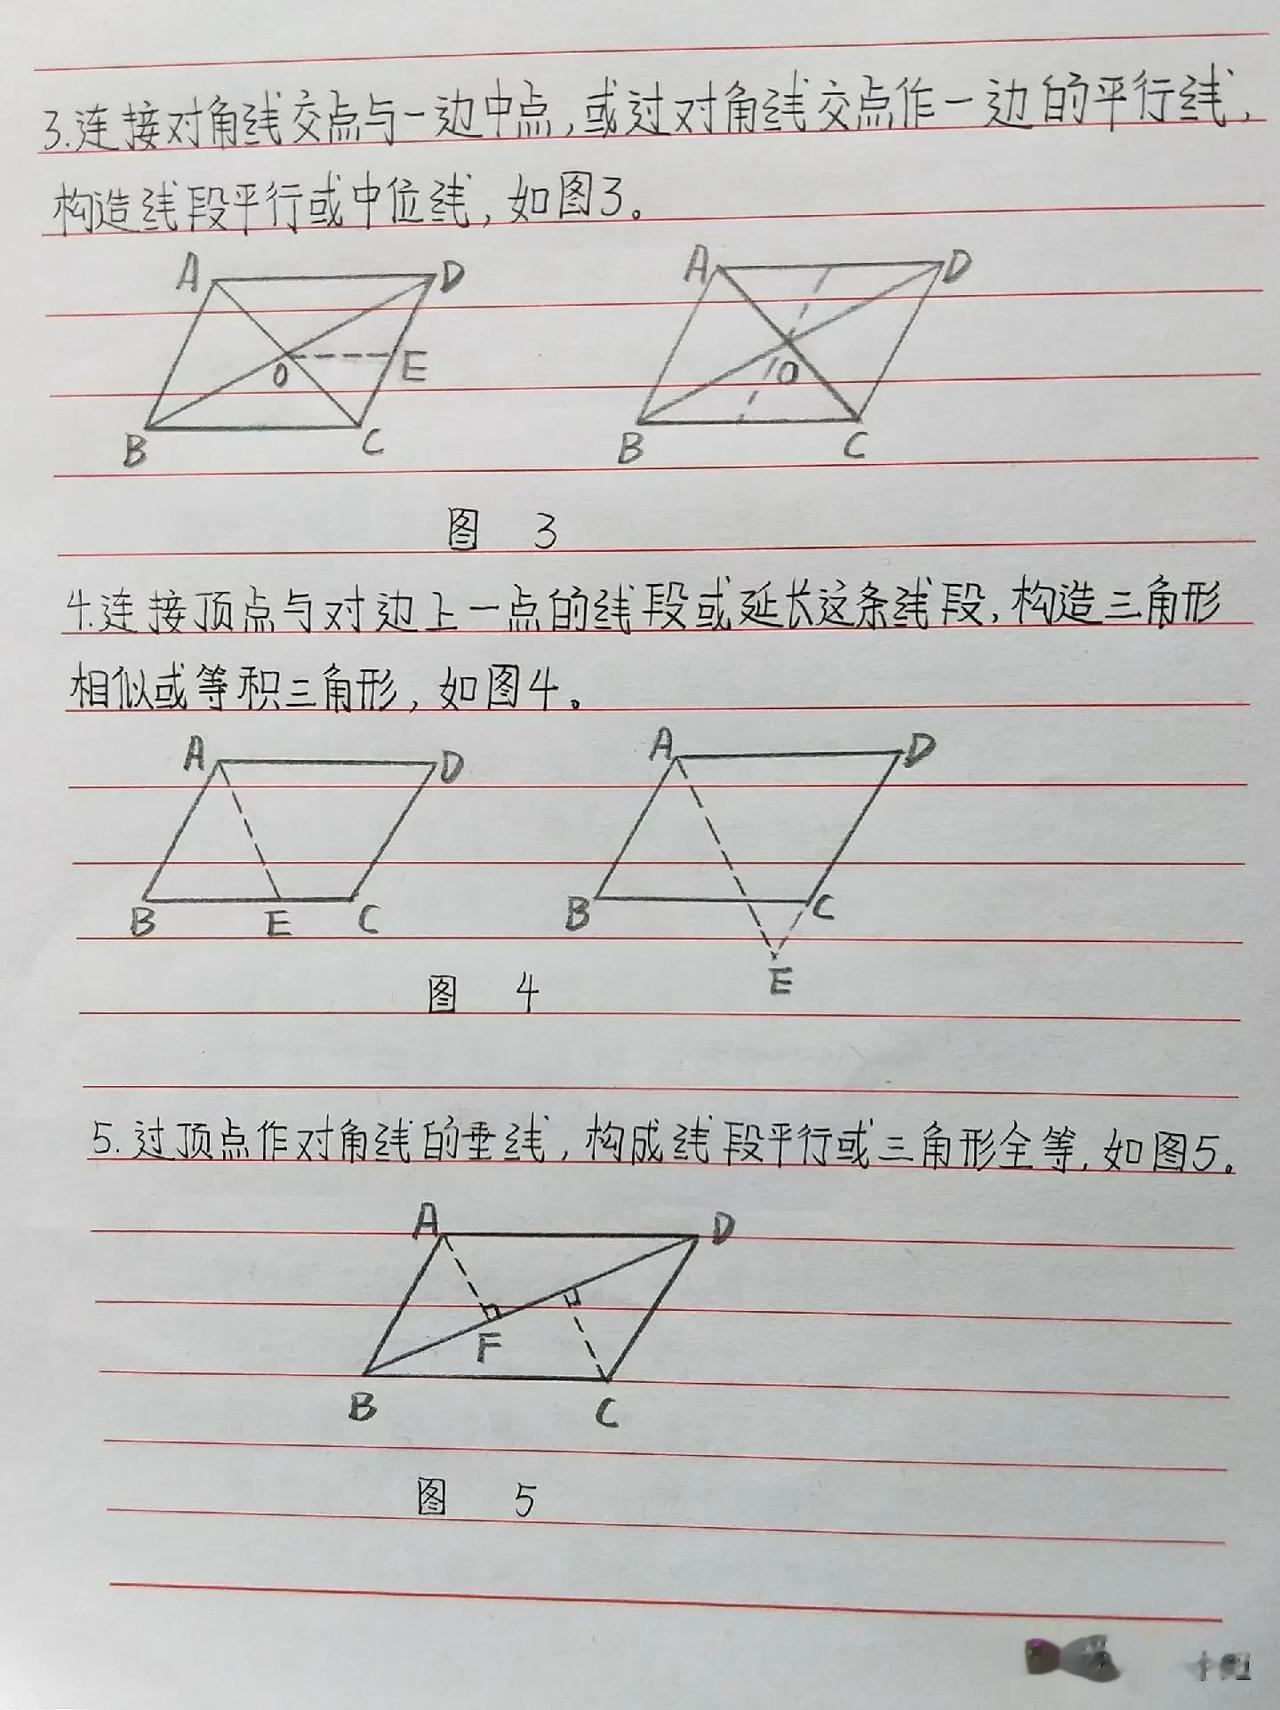 3.连接对角线交点与一边中点,或过对角线交点作一边的平行线,
构造线段平行或中位线,如图3。
A D A D
O E O
B C B C
图 3
4.连接顶点与对边上一点的线段或延长这条线段,构造三角形
相似或等积三角形,如图4。
A D A D
B E C B C
E
图 4
5.过顶点作对角线的垂线,构成线段平行或三角形全等,如图5。
A D
F
B C
图 5